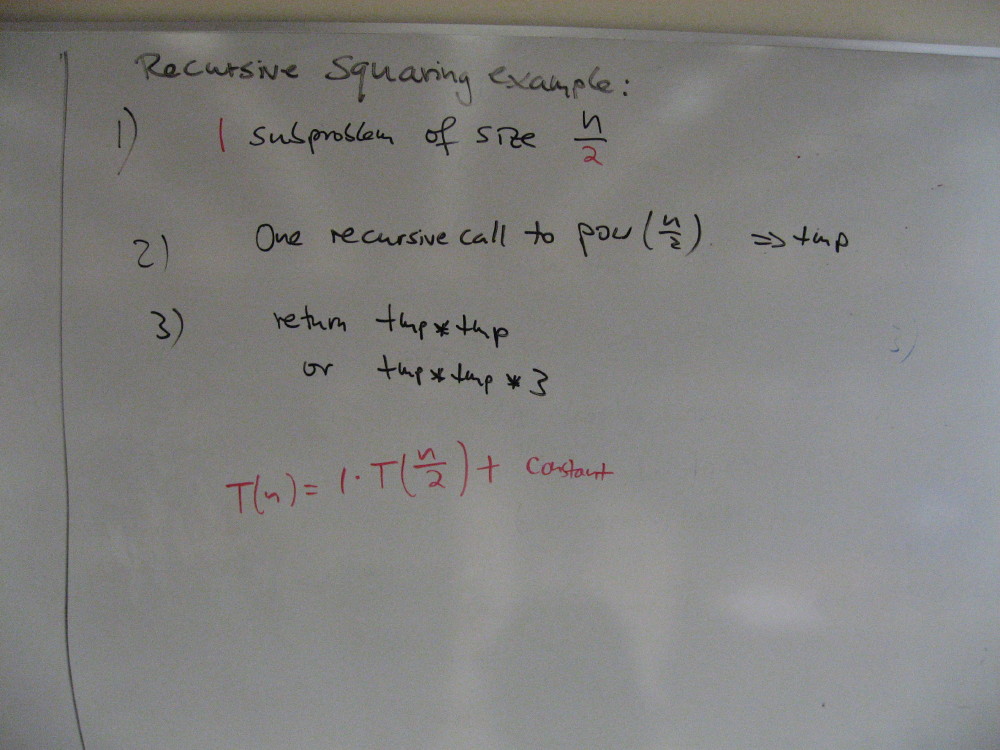 Recursive Squaring example:
1) 1 subproblem of size n/2
2) One recursive call to pow(n/2). => tmp
3) return tmp*tmp
or tmp*tmp*3
T(n) = 1·T(n/2) + constant
3)